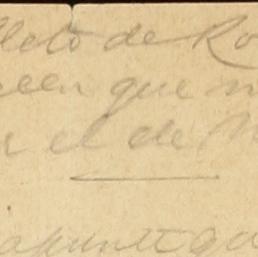 lleto de Ro
een que n
r el de M
apunte qu